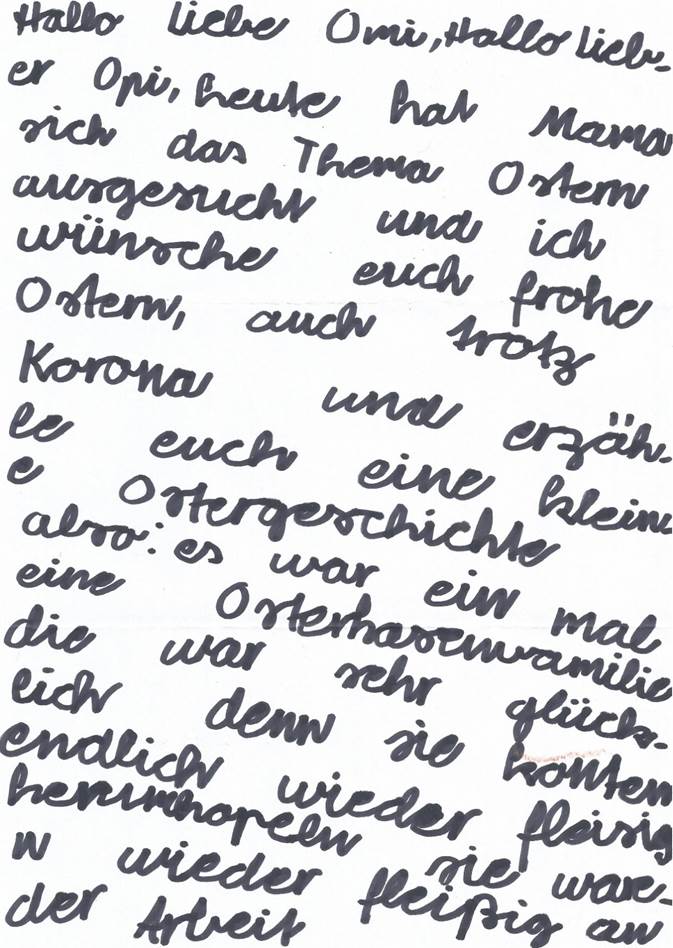 Hallo liebe Omi, Hallo lieb-
er Opi, heute hat Mama
sich das Thema Ostern
ausgesucht und ich
wünsche euch frohe
Ostern, auch trotz
Korona und erzäh-
le euch eine klein
e Ostergeschichte
also: es war ein mal
eine Osterhasenvamilie
die war sehr glück-
lich denn sie konten
endlich wieder fleisig
herumhopeln sie ware-
n wieder fleißig an
der Arbeit